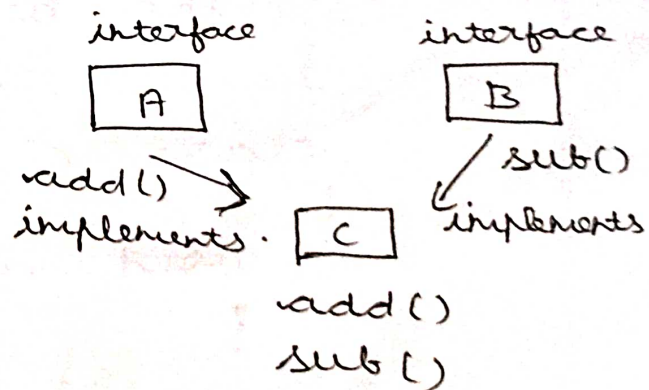 interface
interface
A
B
add()
sub()
implements.
implements
C
add()
sub()